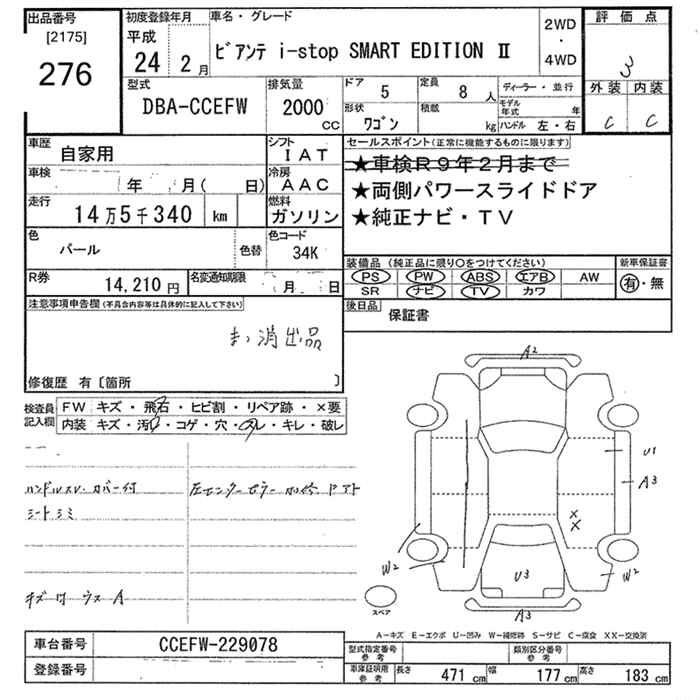 出品番号 [2175] 276
初度登録年月 平成 24 2月
車名・グレード ビアンテ i-stop SMART EDITION Ⅱ
2WD・4WD
評価点 3
外装 内装
C C
型式 DBA-CCEFW
排気量 2000 CC
ドア 5
定員 8人
ディーラー・並行
形状 ワゴン
積載 kg
モデル年式 年
ハンドル 左・右
車歴 自家用
シフト IAT
車検 年 月( 日)
冷房 AAC
走行 14万5千340 km
燃料 ガソリン
色 パール
色替
色コード 34K
R券 14,210円
名変通知期限 月 日
セールスポイント(正常に機能するものに限ります)
★車検R9年2月まで
★両側パワースライドドア
★純正ナビ・TV
装備品(純正品に限り○をつけてください)
新車保証書
PS PW ABS エアB AW
SR ナビ TV カワ
有・無
後日品 保証書
注意事項申告欄(不具合内容等は具体的に記入して下さい)
消出品
修復歴 有〔箇所 〕
検査員記入欄
FW キズ・飛石・ヒビ割・リペア跡・×要
内装 キズ・汚・コゲ・穴・スレ・キレ・破レ
ハンドルスレ・カバー付
シートシミ
A2
U1
A3
X
X
W2
U3
W2
A3
スペア
A―キズ E―エクボ U―凹み W―補修跡 S―サビ C―腐食 XX―交換済
車台番号 CCEFW-229078
登録番号
型式指定番号 参考
類別区分番号 参考
車庫証明用 参考
長さ 471 cm
幅 177 cm
高さ 183 cm